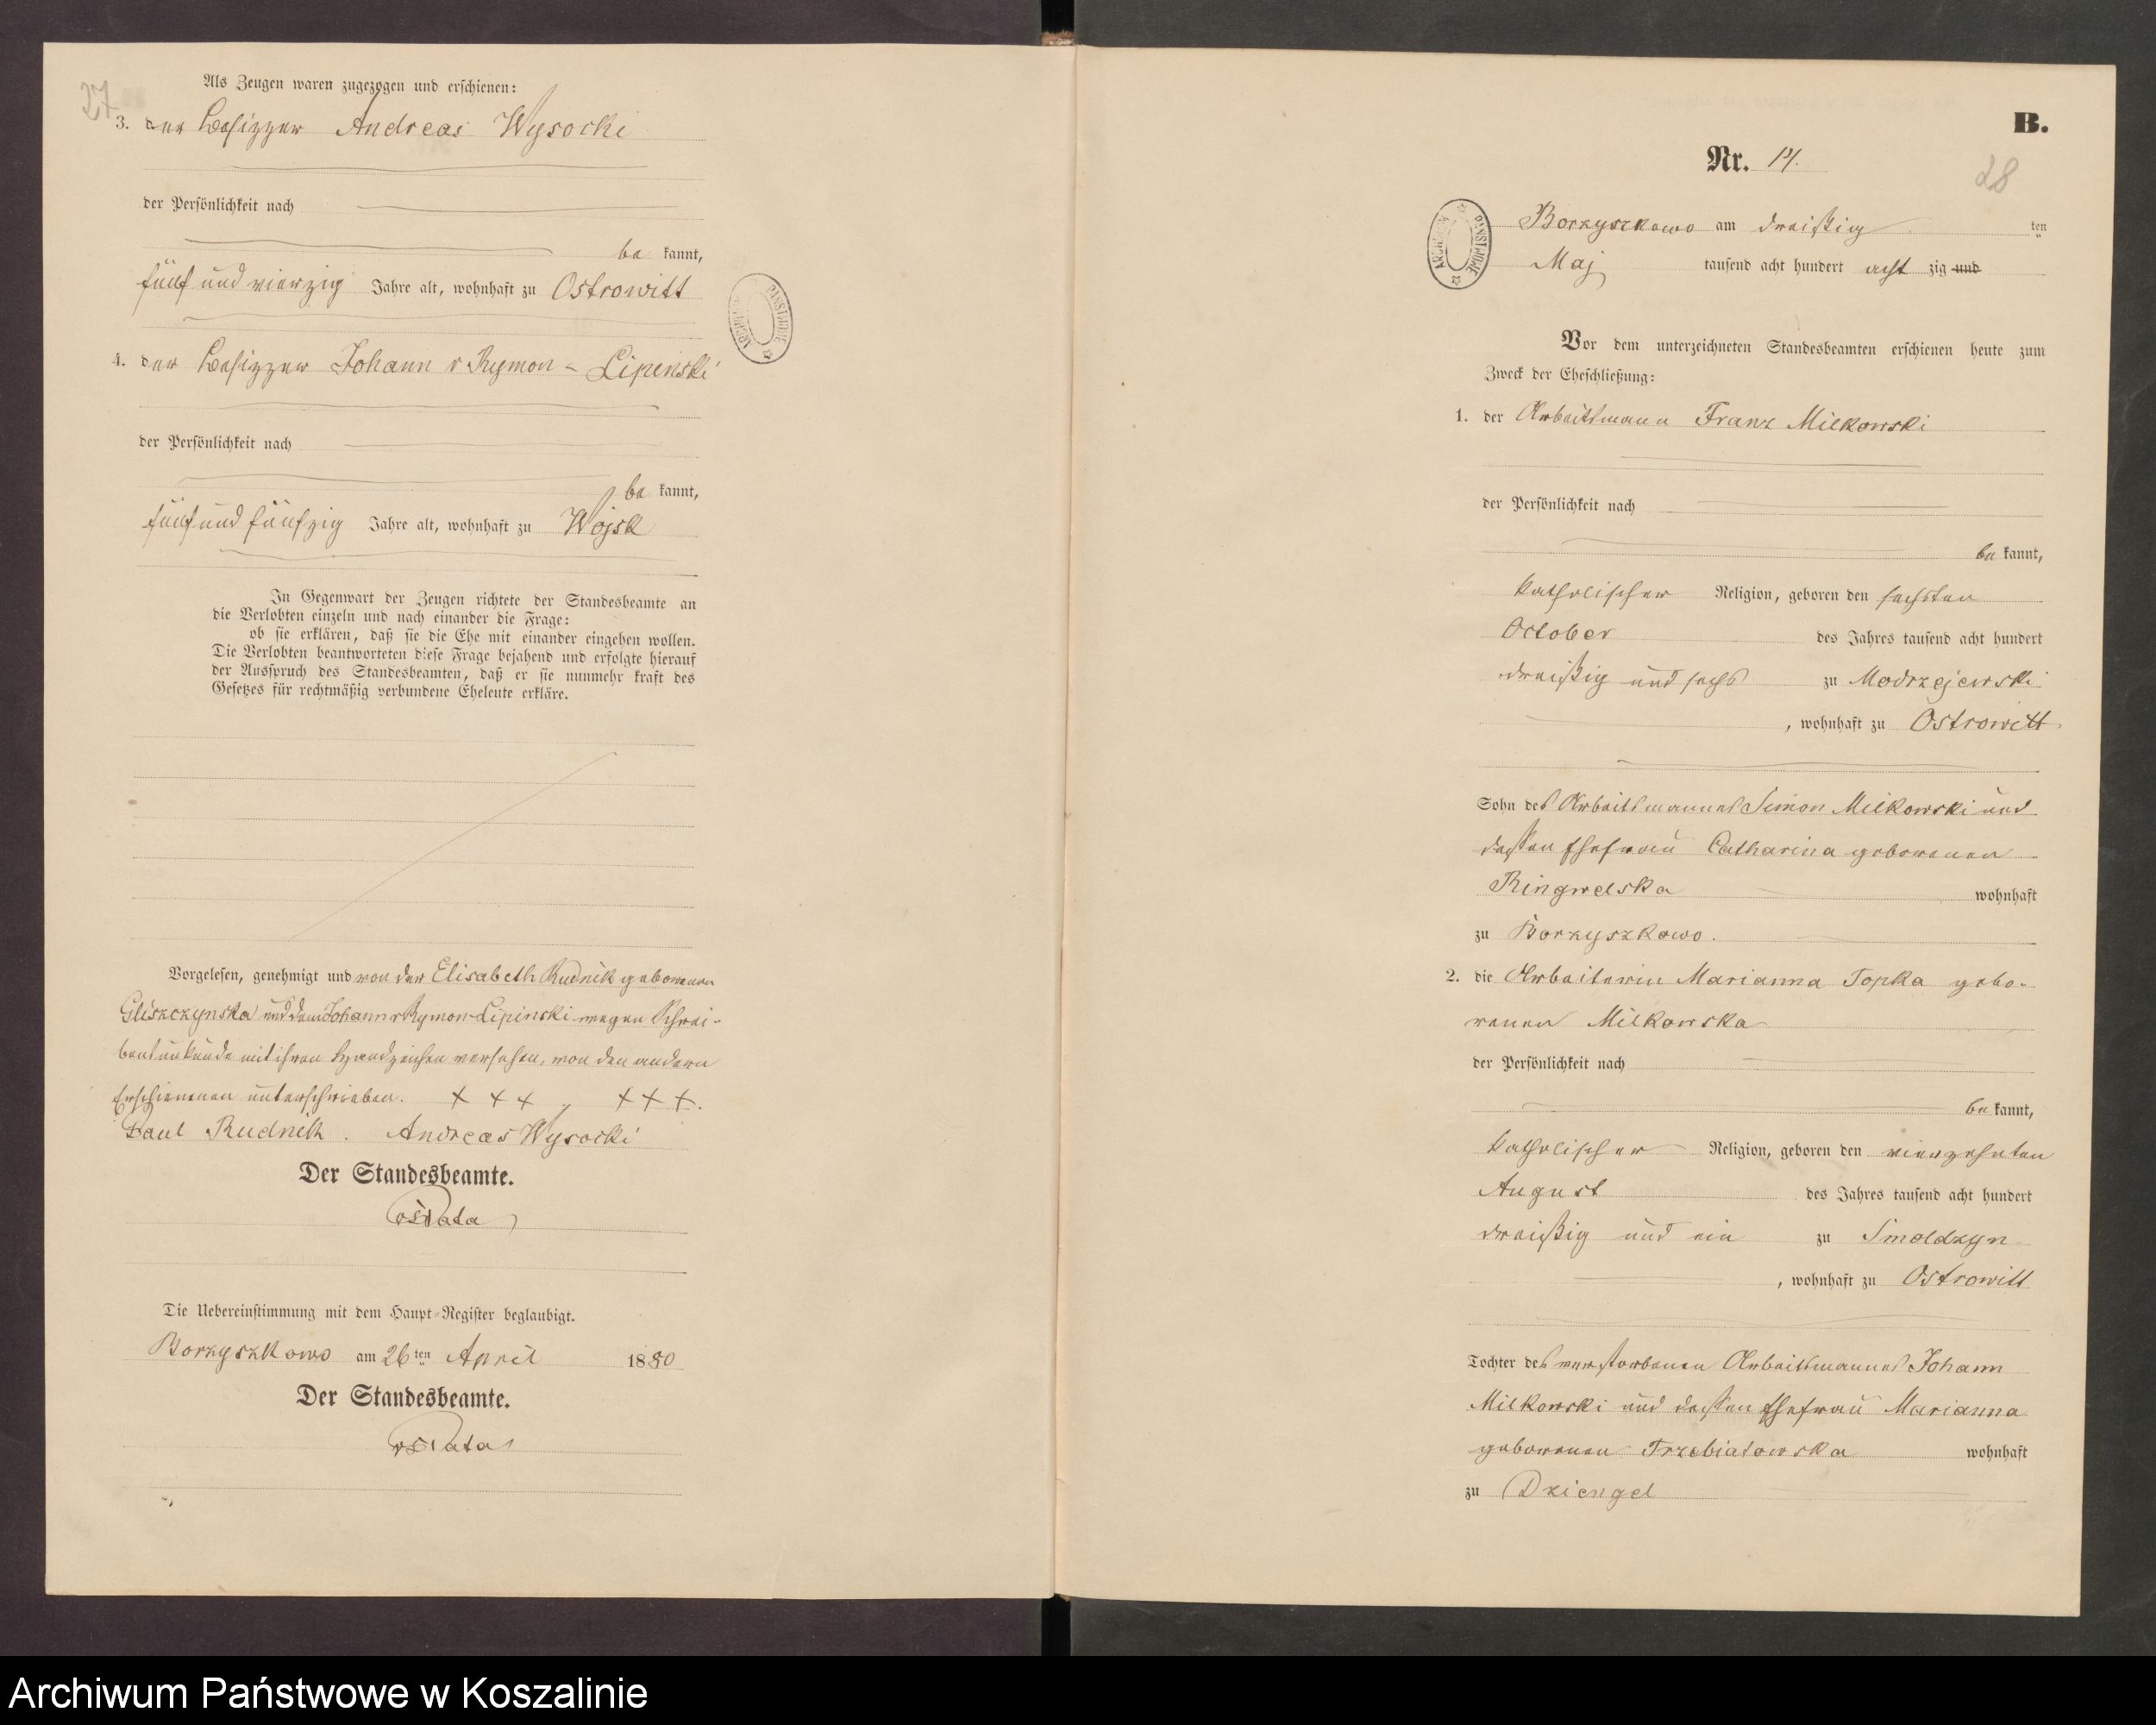 27
Als Zeugen waren zugezogen und erschienen:
3. der Besizzer Andreas Wysocki
der Persönlichkeit nach
be kannt,
fünf und vierzig Jahre alt, wohnhaft zu Ostrowitt
4. der Besizzer Johann v Rymon-Lipinski
der Persönlichkeit nach
be kannt,
fünf und fünfzig Jahre alt, wohnhaft zu Wojsk
In Gegenwart der Zeugen richtete der Standesbeamte an
die Verlobten einzeln und nach einander die Frage:
ob sie erklären, daß sie die Ehe mit einander eingehen wollen.
Die Verlobten beantworteten diese Frage bejahend und erfolgte hierauf
der Ausspruch des Standesbeamten, daß er sie nunmehr kraft des
Gesetzes für rechtmäßig verbundene Eheleute erkläre.
Vorgelesen, genehmigt und von der Elisabeth Rudnik geborenen
Gliszczynska und dem Johann v Rymon-Lipinski wegen Schrei-
bensunkunde mit ihren Handzeichen versehen, von den andern
Erschienenen unterschrieben. + + + , + + +.
Paul Rudnik. Andreas Wysocki
Der Standesbeamte.
Die Uebereinstimmung mit dem Haupt-Register beglaubigt.
Borzyszkowo am 26ten April 1880
Der Standesbeamte.
ARCHIWUM PAŃSTWOWE
B.
Nr. 14.
28
ARCHIWUM PAŃSTWOWE
Borzyszkowo am dreißig ten
Maj tausend acht hundert acht zig und
Vor dem unterzeichneten Standesbeamten erschienen heute zum
Zweck der Eheschließung:
1. der Arbeitsmann Franz Milkowski
der Persönlichkeit nach
be kannt,
katholischer Religion, geboren den sechsten
October des Jahres tausend acht hundert
dreißig und sechs zu Modrzejewski
, wohnhaft zu Ostrowitt
Sohn des Arbeitsmannes Simon Milkowski und
dessen Ehefrau Catharina geborenen
Ringwelska wohnhaft
zu Borzyszkowo.
2. die Arbeiterin Marianna Topka gebo-
renen Milkowska
der Persönlichkeit nach
be kannt,
katholischer Religion, geboren den vierzehnten
August des Jahres tausend acht hundert
dreißig und ein zu Smoldzyn
, wohnhaft zu Ostrowitt
Tochter des verstorbenen Arbeitsmannes Johann
Milkowski und dessen Ehefrau Marianna
geborenen Trzebiatowska wohnhaft
zu Dziengel
Archiwum Państwowe w Koszalinie